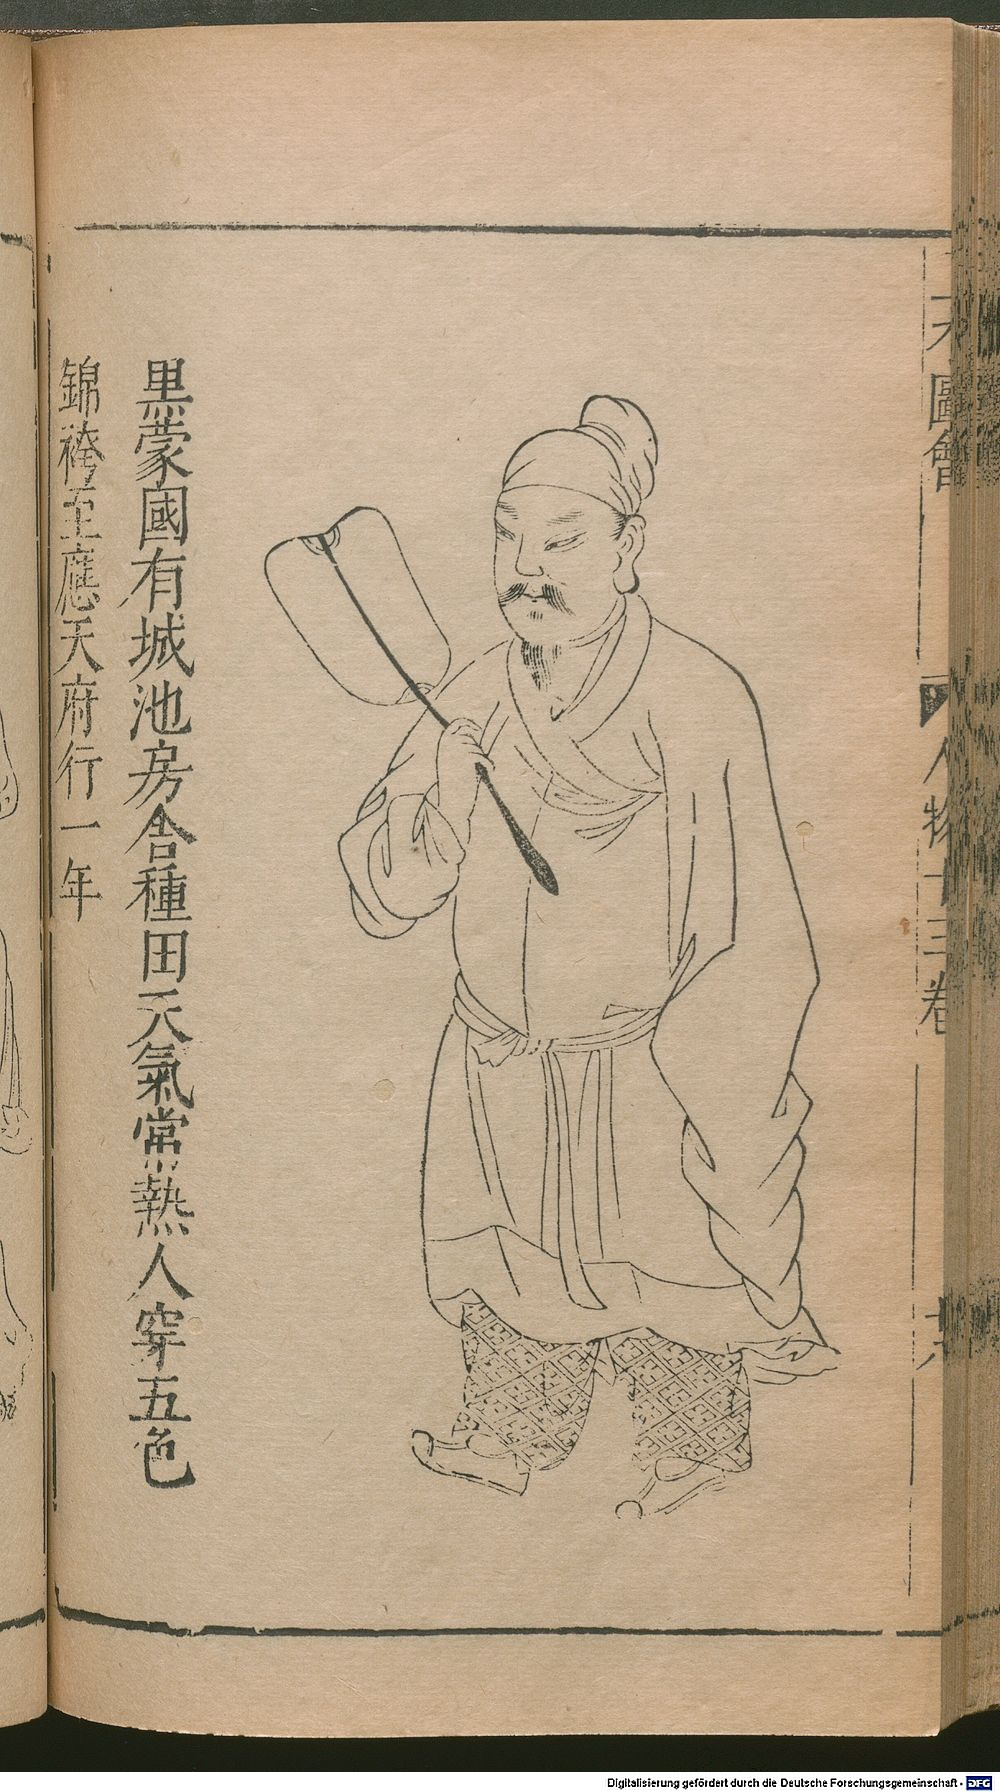 圖會
人物十三卷
黒蒙國有城池房舍種田天氣常熱人穿五色
錦袴至應天府行一年
Digitalisierung gefördert durch die Deutsche Forschungsgemeinschaft - DFG